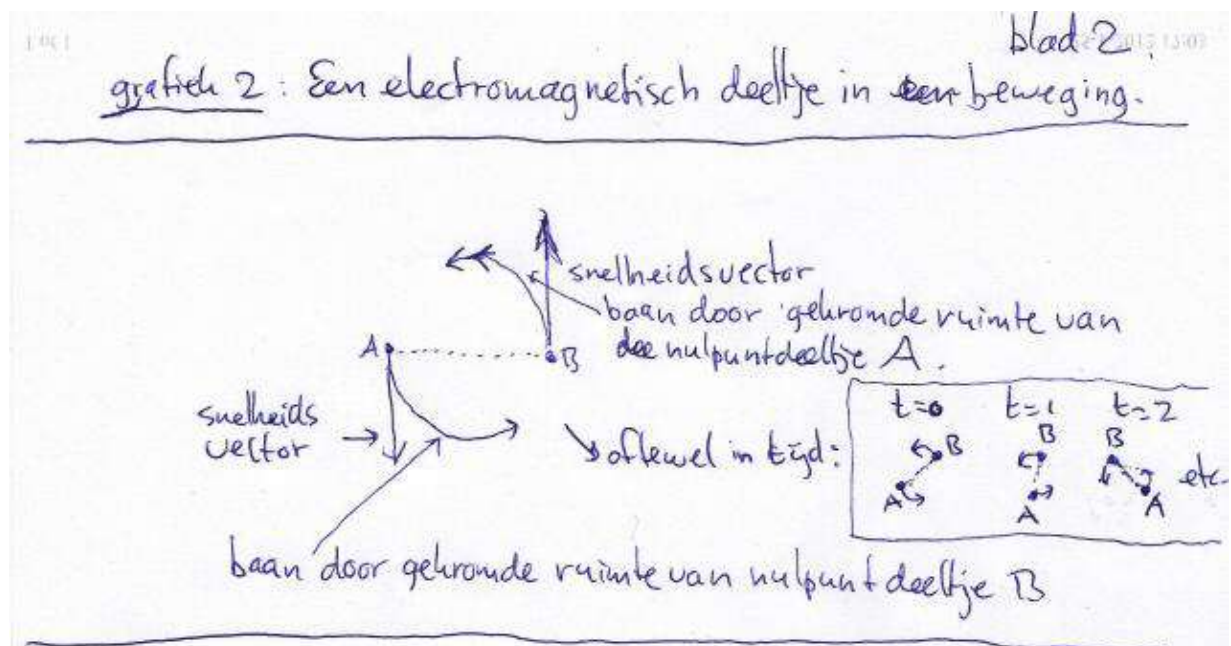 blad 2.
grafiek 2 : Een electromagnetisch deeltje in beweging.
snelheidsvector
baan door gekromde ruimte van
nulpuntdeeltje A.
A
B
snelheids
vector
oftewel in tijd:
t=0 t=1 t=2
B B B
A A A
etc.
baan door gekromde ruimte van nulpunt deeltje B